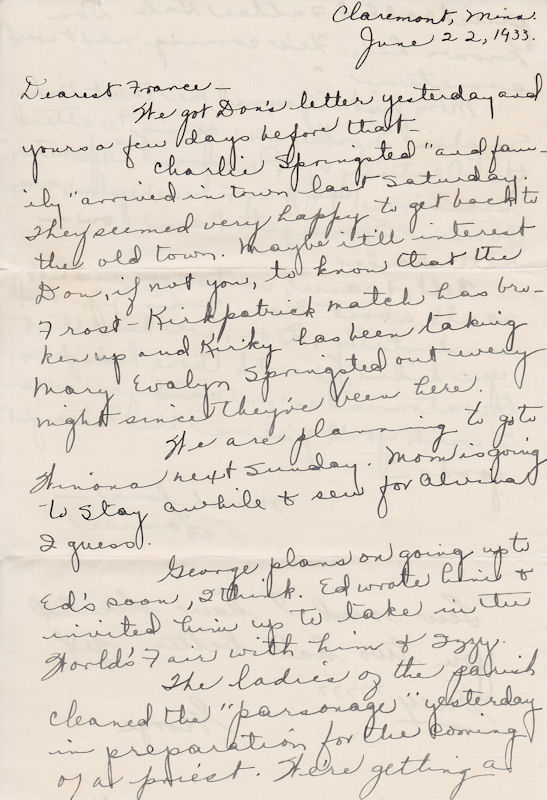 Claremont, Minn.
June 22, 1933.
Dearest France—
We got Don's letter yesterday and
yours a few days before that—
Charlie Springsted "and fam-
ily" arrived in town last Saturday.
They seemed very happy to get back to
the old town. Maybe it'll interest
Don, if not you, to know that the
Frost-Kirkpatrick match has bro-
ken up and Kirky has been taking
Mary Evalyn Springsted out every
night since they've been here.
We are planning to go to
Winona next Sunday. Mom is going
to stay awhile & sew for Alvina
I guess.
George plans on going up to
Ed's soon, I think. Ed wrote him &
invited him up to take in the
World's Fair with him & Izzy.
The ladies of the parish
cleaned the "parsonage" yesterday
in preparation for the coming
of a priest. We're getting a